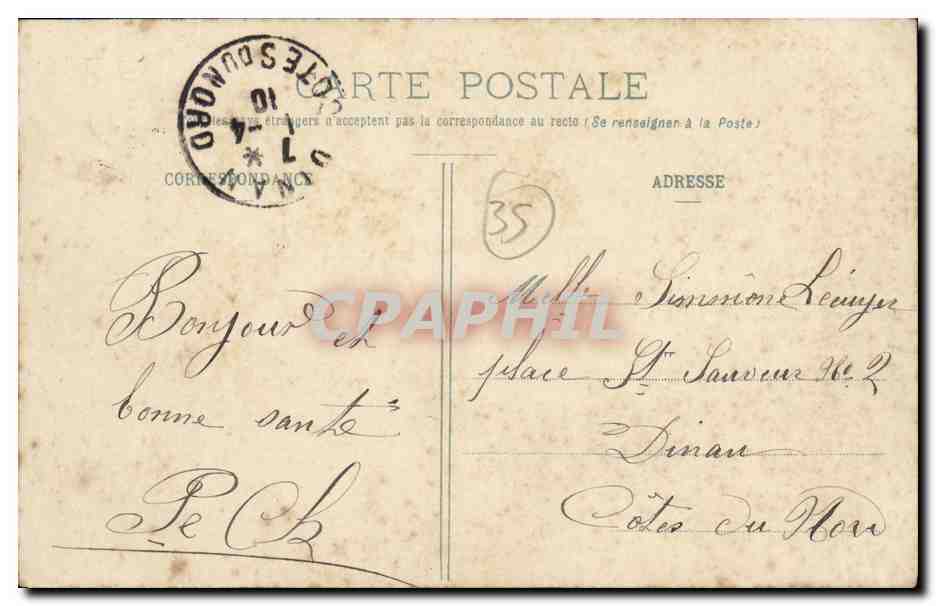 CARTE POSTALE
les pays étrangers n'acceptent pas la correspondance au recto (Se renseigner à la Poste)
DINAN
COTES DU NORD
7 * 1 -4
10
CORRESPONDANCE
ADRESSE
35
Bonjour et
bonne santé
Pe Ch
Melle Simmone Lécuyer
place St Sauveur No 2
Dinan
Côtes du Nord
CPAPHIL